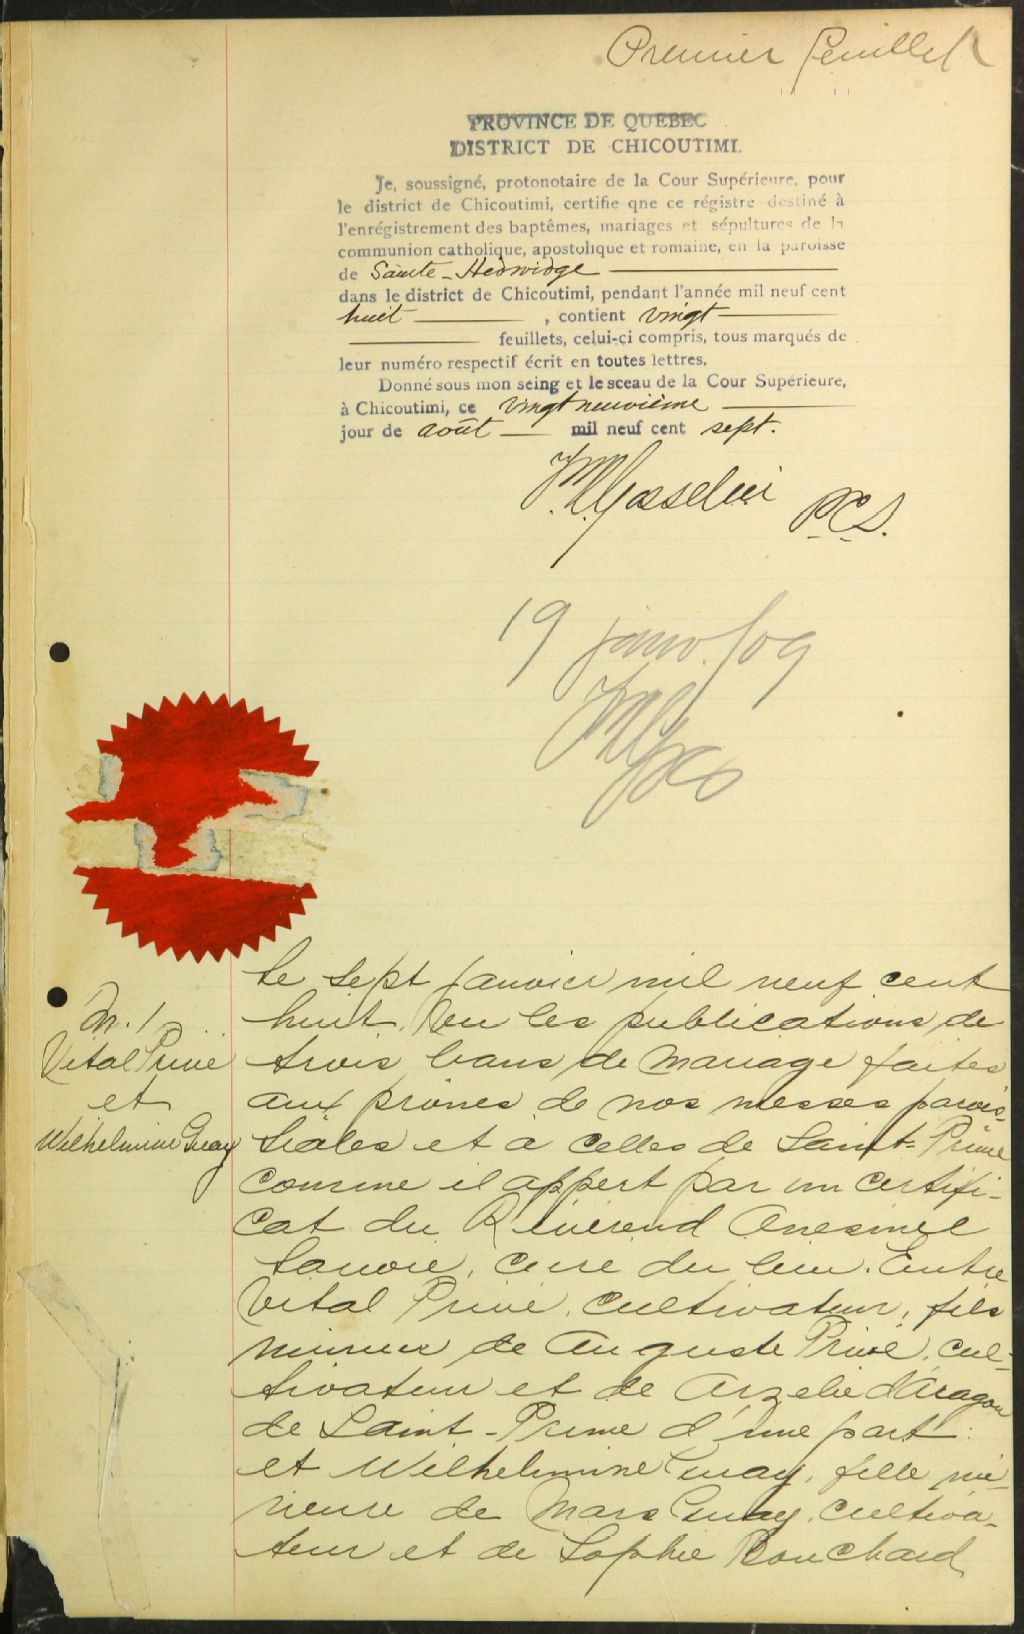 Premier feuillet
PROVINCE DE QUEBEC
DISTRICT DE CHICOUTIMI.
Je, soussigné, protonotaire de la Cour Supérieure, pour
le district de Chicoutimi, certifie qne ce régistre destiné à
l'enrégistrement des baptêmes, mariages et sépultures de la
communion catholique, apostolique et romaine, en la paroisse
de Sainte-Hedwidge
dans le district de Chicoutimi, pendant l'année mil neuf cent
huit, contient vingt
feuillets, celui-çi compris, tous marqués de
leur numéro respectif écrit en toutes lettres.
Donné sous mon seing et le sceau de la Cour Supérieure,
à Chicoutimi, ce vingt neuvième
jour de août mil neuf cent sept.
P.C.S.
19 janv. 09
M. 1
Vital Privé
et
Wilhelmine Guay
Le sept janvier mil neuf cent
huit, Vu les publications de
trois bans de mariage faites
aux prônes de nos messes parois-
siales et a celles de Saint-Prime
comme il appert par un certifi-
cat du Révérend Onesime
Lavoie, curé du lieu. Entre
Vital Privé, cultivateur, fils
mineur de Auguste Privé, cul-
tivateur et de Arzelie d'Aragon
de Saint-Prime d'une part:
et Wilhelmine Guay, fille mi-
neure de Mars Guay, cultiva-
teur et de Sophie Bouchard